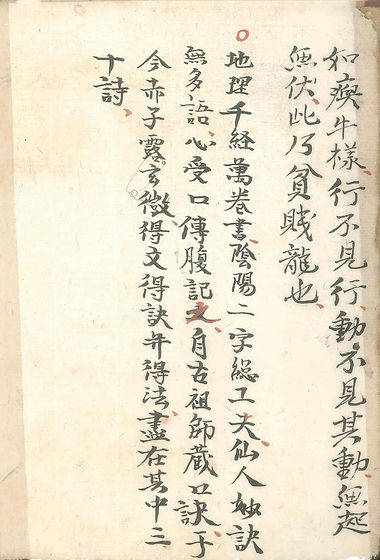 如瘓牛樣、行不見行、動不見其動、無起
無伏、此乃貧賤龍也、
地理千経萬卷書陰陽二字総工夫仙人妙訣
無多語、心受口傳腹記之、自古祖師蔵口訣、于
今赤子露玄微、得文得訣并得法、盡在其中三
十詩、